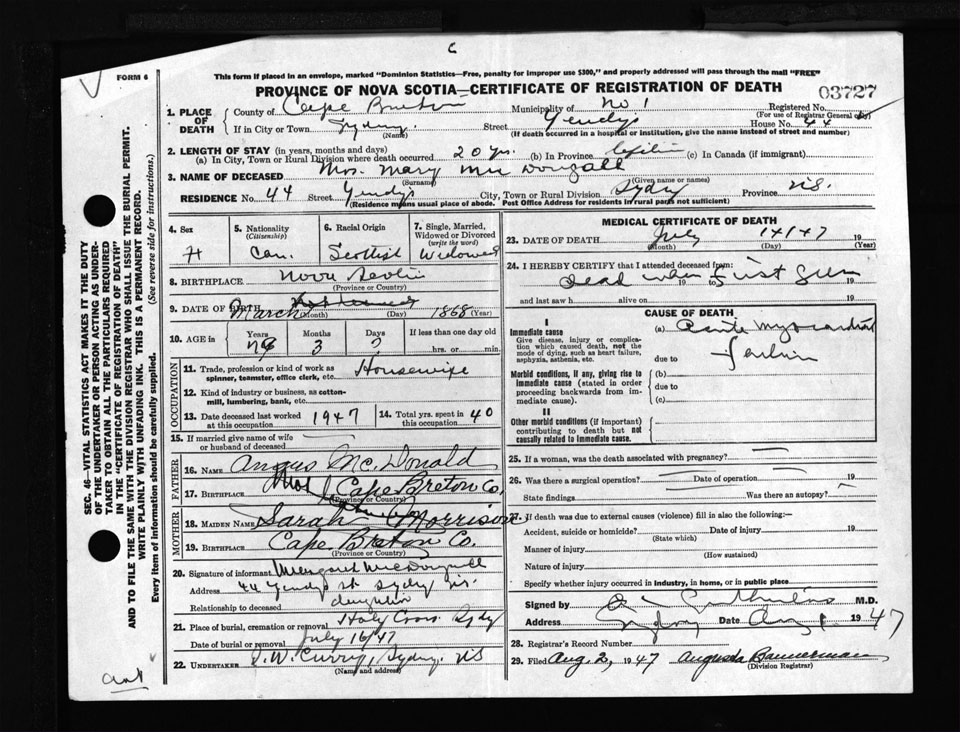 C
FORM 6
This form if placed in an envelope, marked "Dominion Statistics—Free, penalty for improper use $300," and properly addressed will pass through the mail "FREE"
PROVINCE OF NOVA SCOTIA—CERTIFICATE OF REGISTRATION OF DEATH
03727
1. PLACE OF DEATH
County of Cape Breton Municipality of No 1 Registered No.
(For use of Registrar General only)
If in City or Town Sydney Street House No. 44
(Name) (If death occurred in a hospital or institution, give the name instead of street and number)
2. LENGTH OF STAY (in years, months and days)
(a) In City, Town or Rural Division where death occurred 20 yrs. (b) In Province (c) In Canada (if immigrant)
3. NAME OF DECEASED Mrs. Mary Mac Dougall
(Surname) (Given name or names)
RESIDENCE No. 44 Street City, Town or Rural Division Sydney Province N.S.
(Residence means usual place of abode. Post Office Address for residents in rural parts not sufficient)
SEC. 46—VITAL STATISTICS ACT MAKES IT THE DUTY
OF THE UNDERTAKER OR PERSON ACTING AS UNDER-
TAKER TO OBTAIN ALL THE PARTICULARS REQUIRED
IN THE "CERTIFICATE OF REGISTRATION OF DEATH"
AND TO FILE THE SAME WITH THE DIVISION REGISTRAR WHO SHALL ISSUE THE BURIAL PERMIT.
WRITE PLAINLY WITH UNFADING INK. THIS IS A PERMANENT RECORD.
Every item of information should be carefully supplied. (See reverse side for instructions.)
4. Sex
5. Nationality (Citizenship)
6. Racial Origin
7. Single, Married, Widowed or Divorced (write the word)
Can. Scottish Widowed
8. BIRTHPLACE Nova Scotia
(Province or Country)
9. DATE OF BIRTH March 1868 (Year)
(Month) (Day)
10. AGE in Years Months Days If less than one day old
79 3 hrs. or min.
OCCUPATION
11. Trade, profession or kind of work as spinner, teamster, office clerk, etc. Housewife
12. Kind of industry or business, as cotton-mill, lumbering, bank, etc.
13. Date deceased last worked at this occupation 1947
14. Total yrs. spent in this occupation 40
15. If married give name of wife or husband of deceased
FATHER
16. NAME Angus Mc.Donald
17. BIRTHPLACE Cape Breton Co.
(Province or Country)
MOTHER
18. MAIDEN NAME Sarah Morrison
19. BIRTHPLACE Cape Breton Co.
(Province or Country)
20. Signature of informant Margaret MacDougall
Address 44 St Sydney N.S.
Relationship to deceased daughter
21. Place of burial, cremation or removal Holy Cross Sydney
Date of burial or removal July 16/47
22. UNDERTAKER W. Curry, Sydney, NS
(Name and address)
ant
MEDICAL CERTIFICATE OF DEATH
23. DATE OF DEATH July 14/47 19
(Month) (Day) (Year)
24. I HEREBY CERTIFY that I attended deceased from:
Dead when first seen 19 to 19
and last saw h alive on 19
CAUSE OF DEATH
I
Immediate cause
Give disease, injury or complication which caused death, not the mode of dying, such as heart failure, asphyxia, asthenia, etc.
(a) Acute myocardial
due to failure
Morbid conditions, if any, giving rise to immediate cause (stated in order proceeding backwards from immediate cause).
(b)
due to
(c)
II
Other morbid conditions (if important) contributing to death but not causally related to immediate cause.
25. If a woman, was the death associated with pregnancy?
26. Was there a surgical operation? Date of operation 19
State findings Was there an autopsy?
27. If death was due to external causes (violence) fill in also the following:
Accident, suicide or homicide? Date of injury 19
(State which)
Manner of injury
(How sustained)
Nature of injury
Specify whether injury occurred in industry, in home, or in public place
Signed by M.D.
Address Sydney Date Aug 1 1947
28. Registrar's Record Number
29. Filed Aug. 2, 1947 Augusta Bannerman
(Division Registrar)